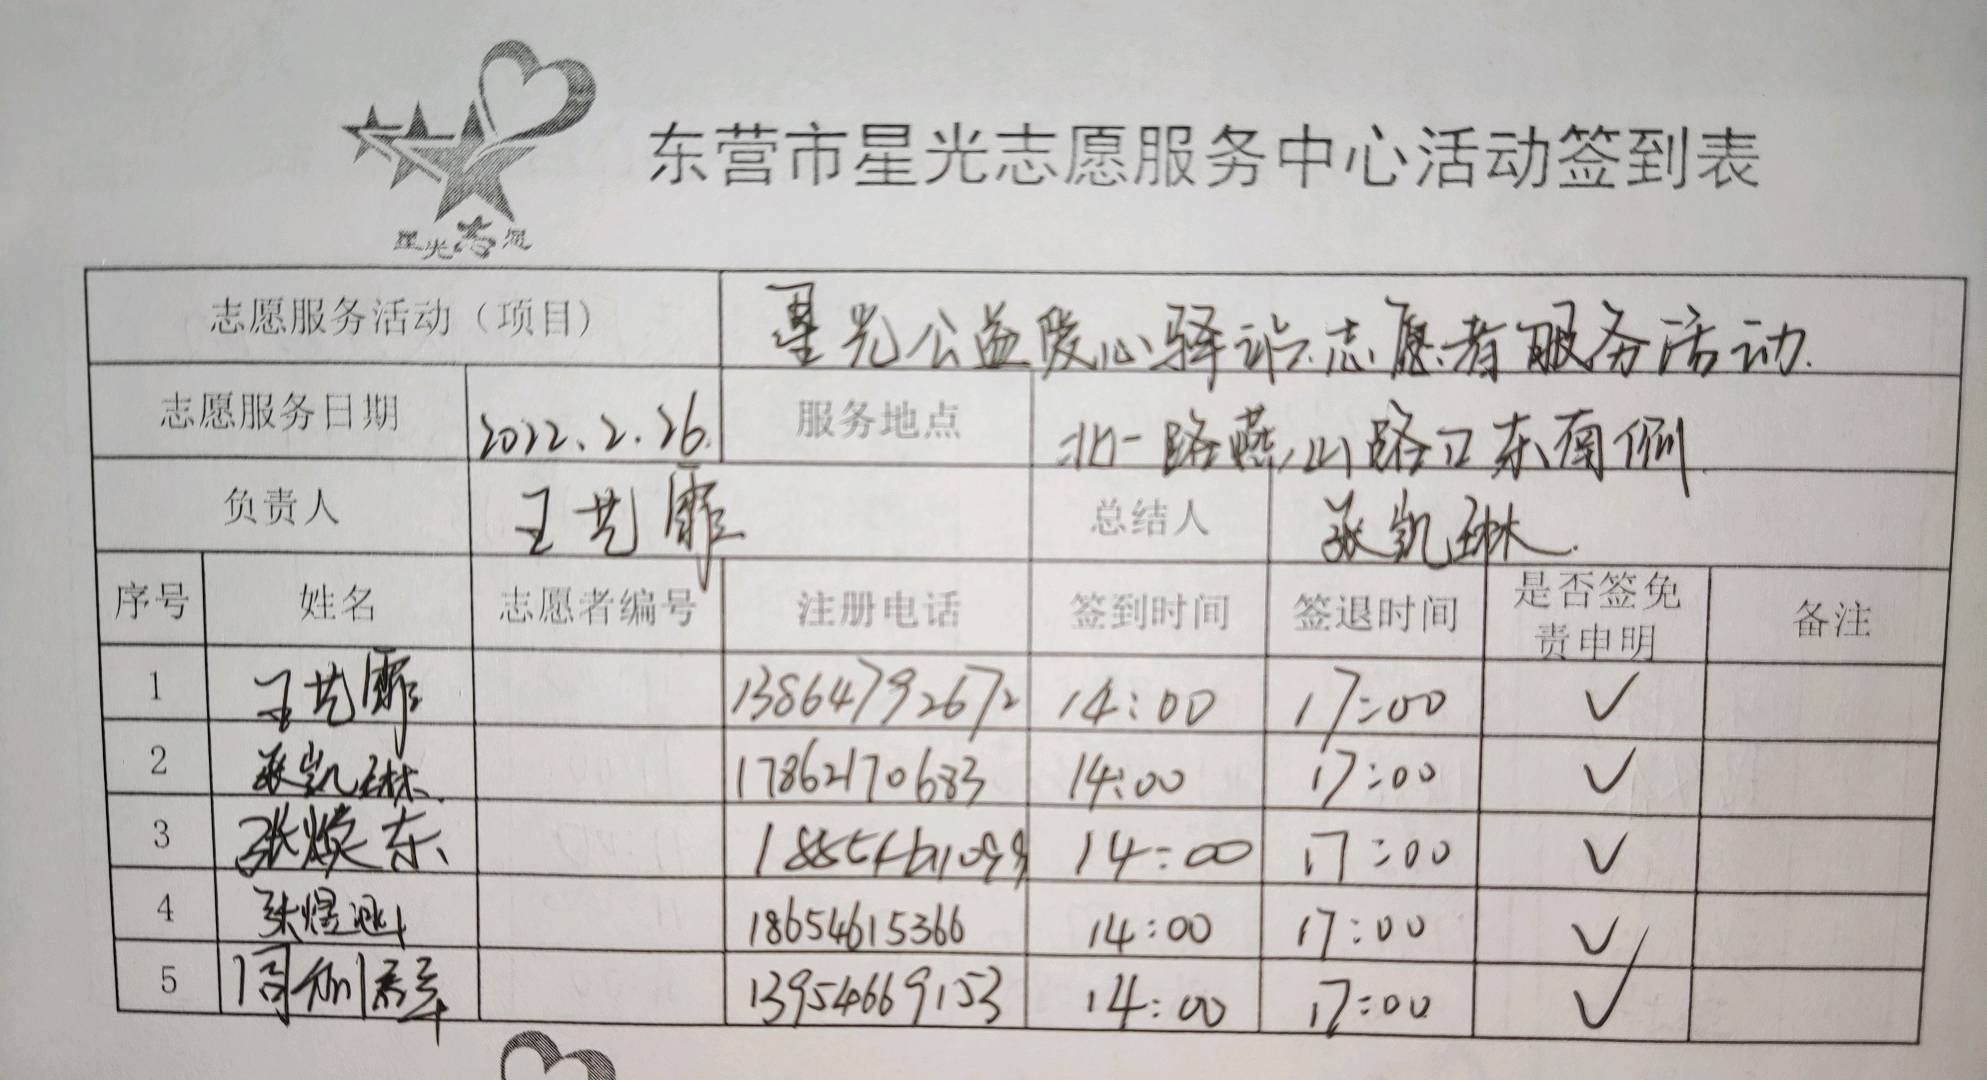 星光志愿
东营市星光志愿服务中心活动签到表
志愿服务活动（项目） 星光公益爱心驿站志愿者服务活动.
志愿服务日期 2022.2.26. 服务地点 北一路燕山路口东南侧
负责人 王艺霏 总结人 张凯琳.
序号 姓名 志愿者编号 注册电话 签到时间 签退时间 是否签免责申明 备注
1 王艺霏 13864792672 14:00 17:00 ✓
2 张凯琳. 17862170683 14:00 17:00 ✓
3 张焕东 14:00 17:00 ✓
4 张煜 18654615366 14:00 17:00 ✓
5 周 13954669153 14:00 17:00 ✓